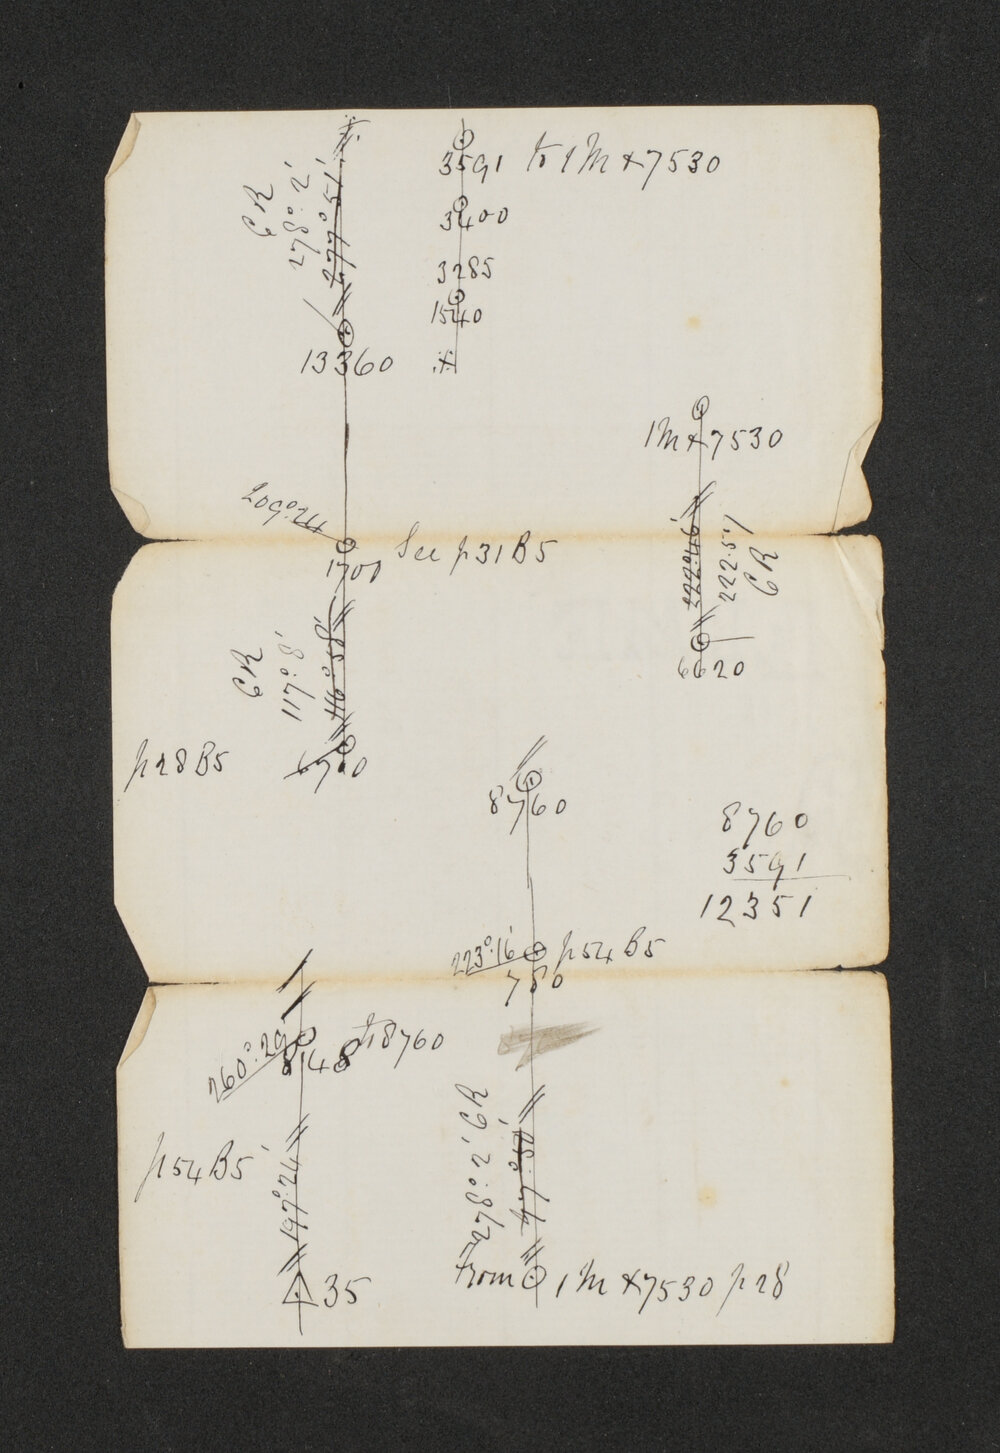 3591 to 1M+7530
CR
278°.2'
277°.51'
3400
3285
1540
13360
1M+7530
209°.24
See p31 B5
1700
222.46'
222.57
CR
6620
CR
117°.8'
116°.58'
p28 B5
6700
8760
8760
3591
12351
223°.16'
p54 B5
780
260°.29'
8148
to 8760
278°.2' CR
p54 B5
197°.24'
From
1M+7530 p28
35